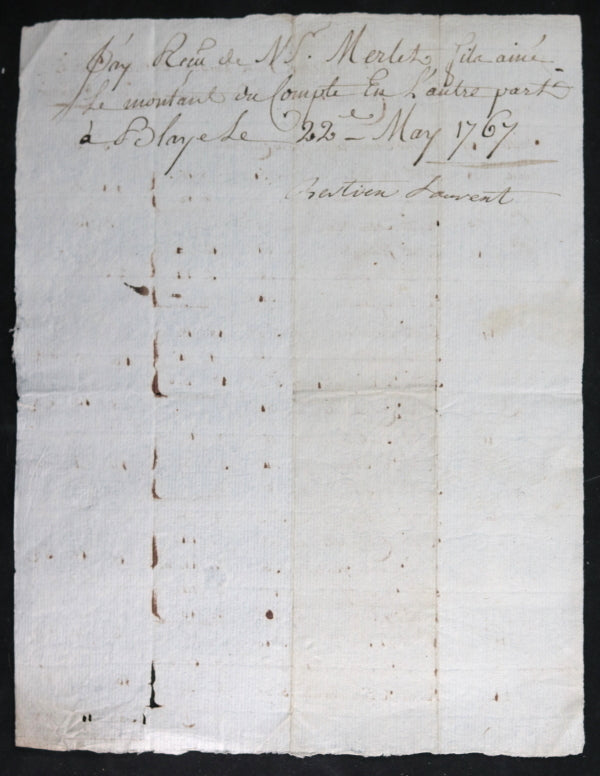 J'ay Reçu de Mr. Merlet fils ainé
Le montant du Compte En L'autre part
à Blaye Le 22e May 1767.
Laurent